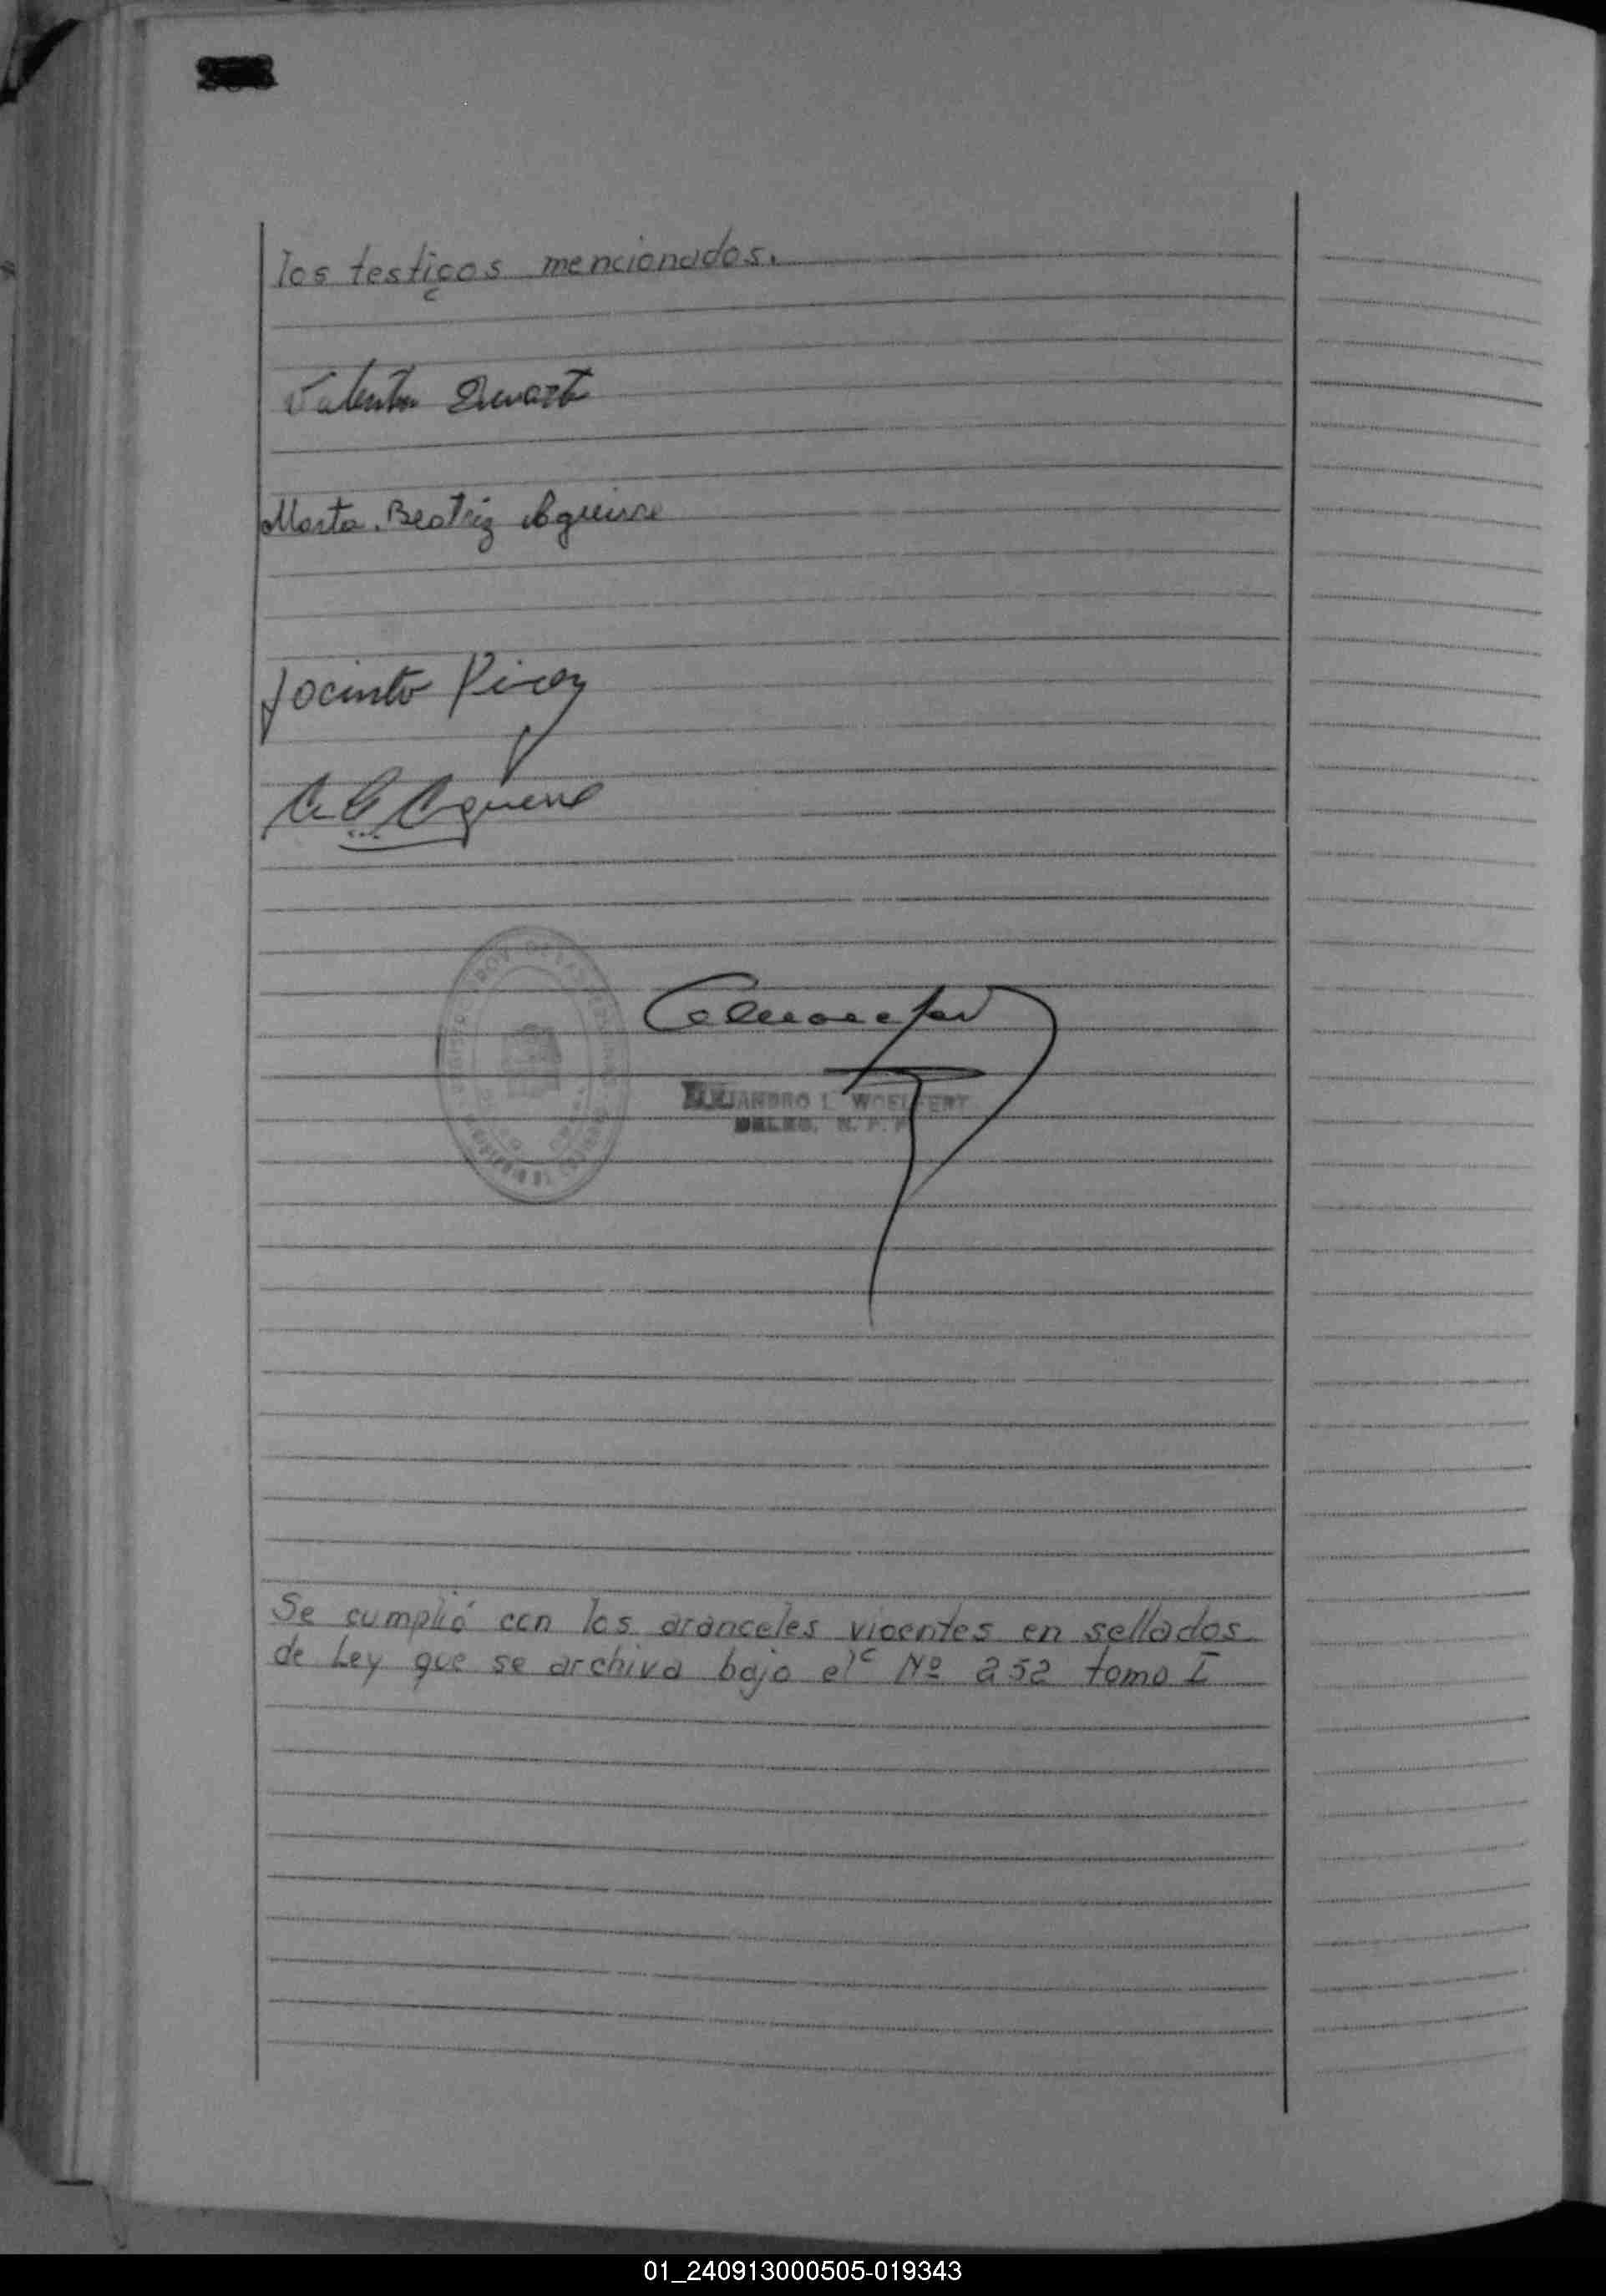 los testigos mencionados.
Valentin Duarte
Marta. Beatriz Aguirre
Jacinto Piray
Aguirre
ALEJANDRO L. WOELFERT
DELEG. R. P. P.
Se cumplió con los aranceles vigentes en sellados
de Ley que se archiva bajo el Nº 252 tomo I
01_240913000505-019343